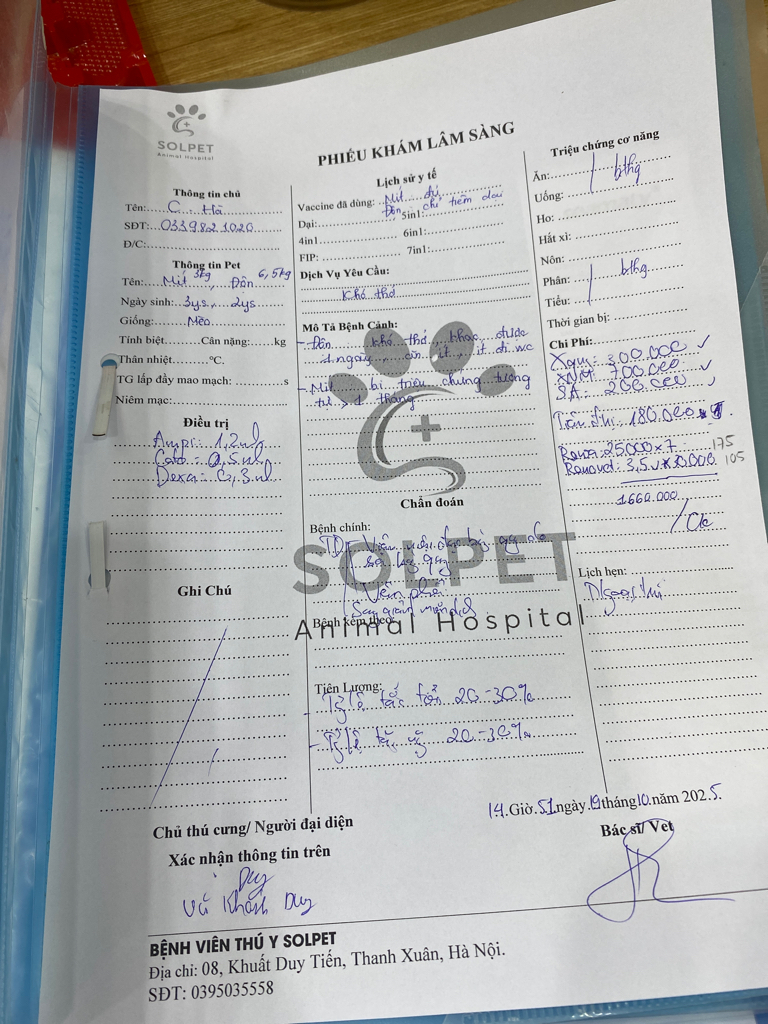 SOLPET
Animal Hospital
PHIẾU KHÁM LÂM SÀNG
Thông tin chủ
Tên: C. Hà
SĐT: 0339821020
Đ/C:
Thông tin Pet
Tên: Mít 3kg, Đôn 6,5kg
Ngày sinh: 3ys, 2ys
Giống: Mèo
Tính biệt Cân nặng: kg
Thân nhiệt °C.
TG lấp đầy mao mạch: s
Niêm mạc:
Điều trị
Ampi: 1,2ml
0,5ml
Dexa: 0,3ml
Ghi Chú
Lịch sử y tế
Vaccine đã dùng: Mít đủ
Đôn chỉ tiêm dại
Dại: 5in1:
4in1 6in1:
FIP: 7in1:
Dịch Vụ Yêu Cầu:
Khó thở
Mô Tả Bệnh Cảnh:
- Đôn khó thở, được
1 ngày, ăn ít, ít đi wc
- Mít bị triệu chứng tương
tự > 1 tháng
Chẩn đoán
Bệnh chính:
TD
Viêm phổi
Suy giảm miễn dịch
Bệnh kèm theo:
SOLPET
Animal Hospital
Tiên Lượng:
- Tỷ lệ 20-30%
- Tỷ lệ 20-30%
Triệu chứng cơ năng
Ăn: bthg
Uống:
Ho:
Hắt xì:
Nôn:
Phân: bthg
Tiểu:
Thời gian bị:
Chi Phí:
Xquang: 300.000 ✓
XNM 700.000 ✓
SA: 200.000 ✓
180.000
25000 x 7 175
3,5 x 30.000 105
1660.000
/Ck
Lịch hẹn:
Ngoại trú
14 Giờ 51 ngày 19 tháng 10 năm 2025
Chủ thú cưng/ Người đại diện
Xác nhận thông tin trên
Duy
Vũ Khánh Duy
Bác sĩ/ Vet
BỆNH VIỆN THÚ Y SOLPET
Địa chỉ: 08, Khuất Duy Tiến, Thanh Xuân, Hà Nội.
SĐT: 0395035558